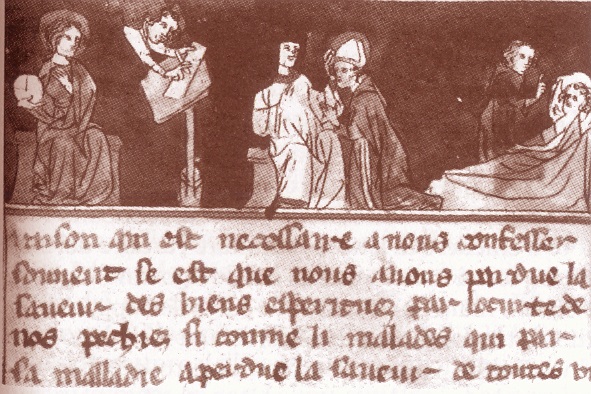 raison qui est necessaire a nous confesser
souuent se est que nous auons perdue la
saueur des biens espirituez par locurte de
nos pechiez si comme li malades qui par
sa malladie a perdue la saueur de toutes